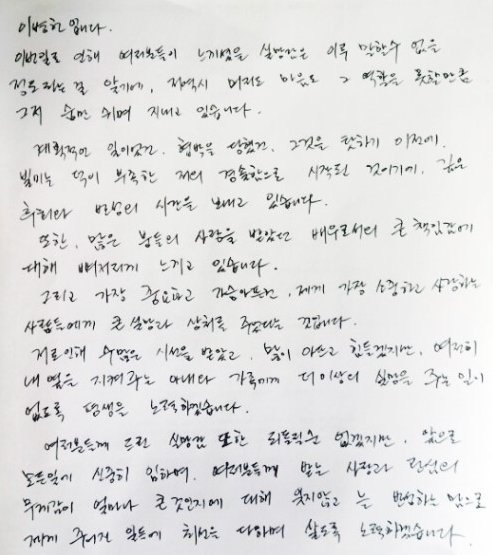 이병헌입니다.
이번일로 인해 여러분들이 느끼셨을 실망감은 이루 말할수 없을
정도라는걸 알기에, 저역시 머리도 마음도 그 역할을 못할만큼
그저 숨만 쉬며 지내고 있습니다.
계획적인 일이었건, 협박을 당했건, 그것을 탓하기 이전에,
빌미는 덕이 부족한 저의 경솔함으로 시작된 것이기에, 깊은
후회와 반성의 시간을 보내고 있습니다.
또한, 많은 분들의 사랑을 받았던 배우로서의 큰 책임감에
대해 뼈저리게 느끼고 있습니다.
그리고 가장 중요하고 가슴아픈건, 제게 가장 소중하고 사랑하는
사람들에게 큰 실망과 상처를 주었다는 겁니다.
저로인해 수많은 시선을 받았고, 많이 아프고 힘들겠지만, 여전히
내 옆을 지켜주는 아내와 가족에게 더이상의 실망을 주는 일이
없도록 평생을 노력하겠습니다.
여러분들께 드린 실망감 또한 되돌릴순 없겠지만, 앞으로
모든일에 신중히 임하며, 여러분들께 받은 사랑과 관심의
무게감이 얼마나 큰것인지에 대해 잊지않고 늘 반성하는 맘으로
제게 주어진 일들에 최선을 다하며 살도록 노력하겠습니다.